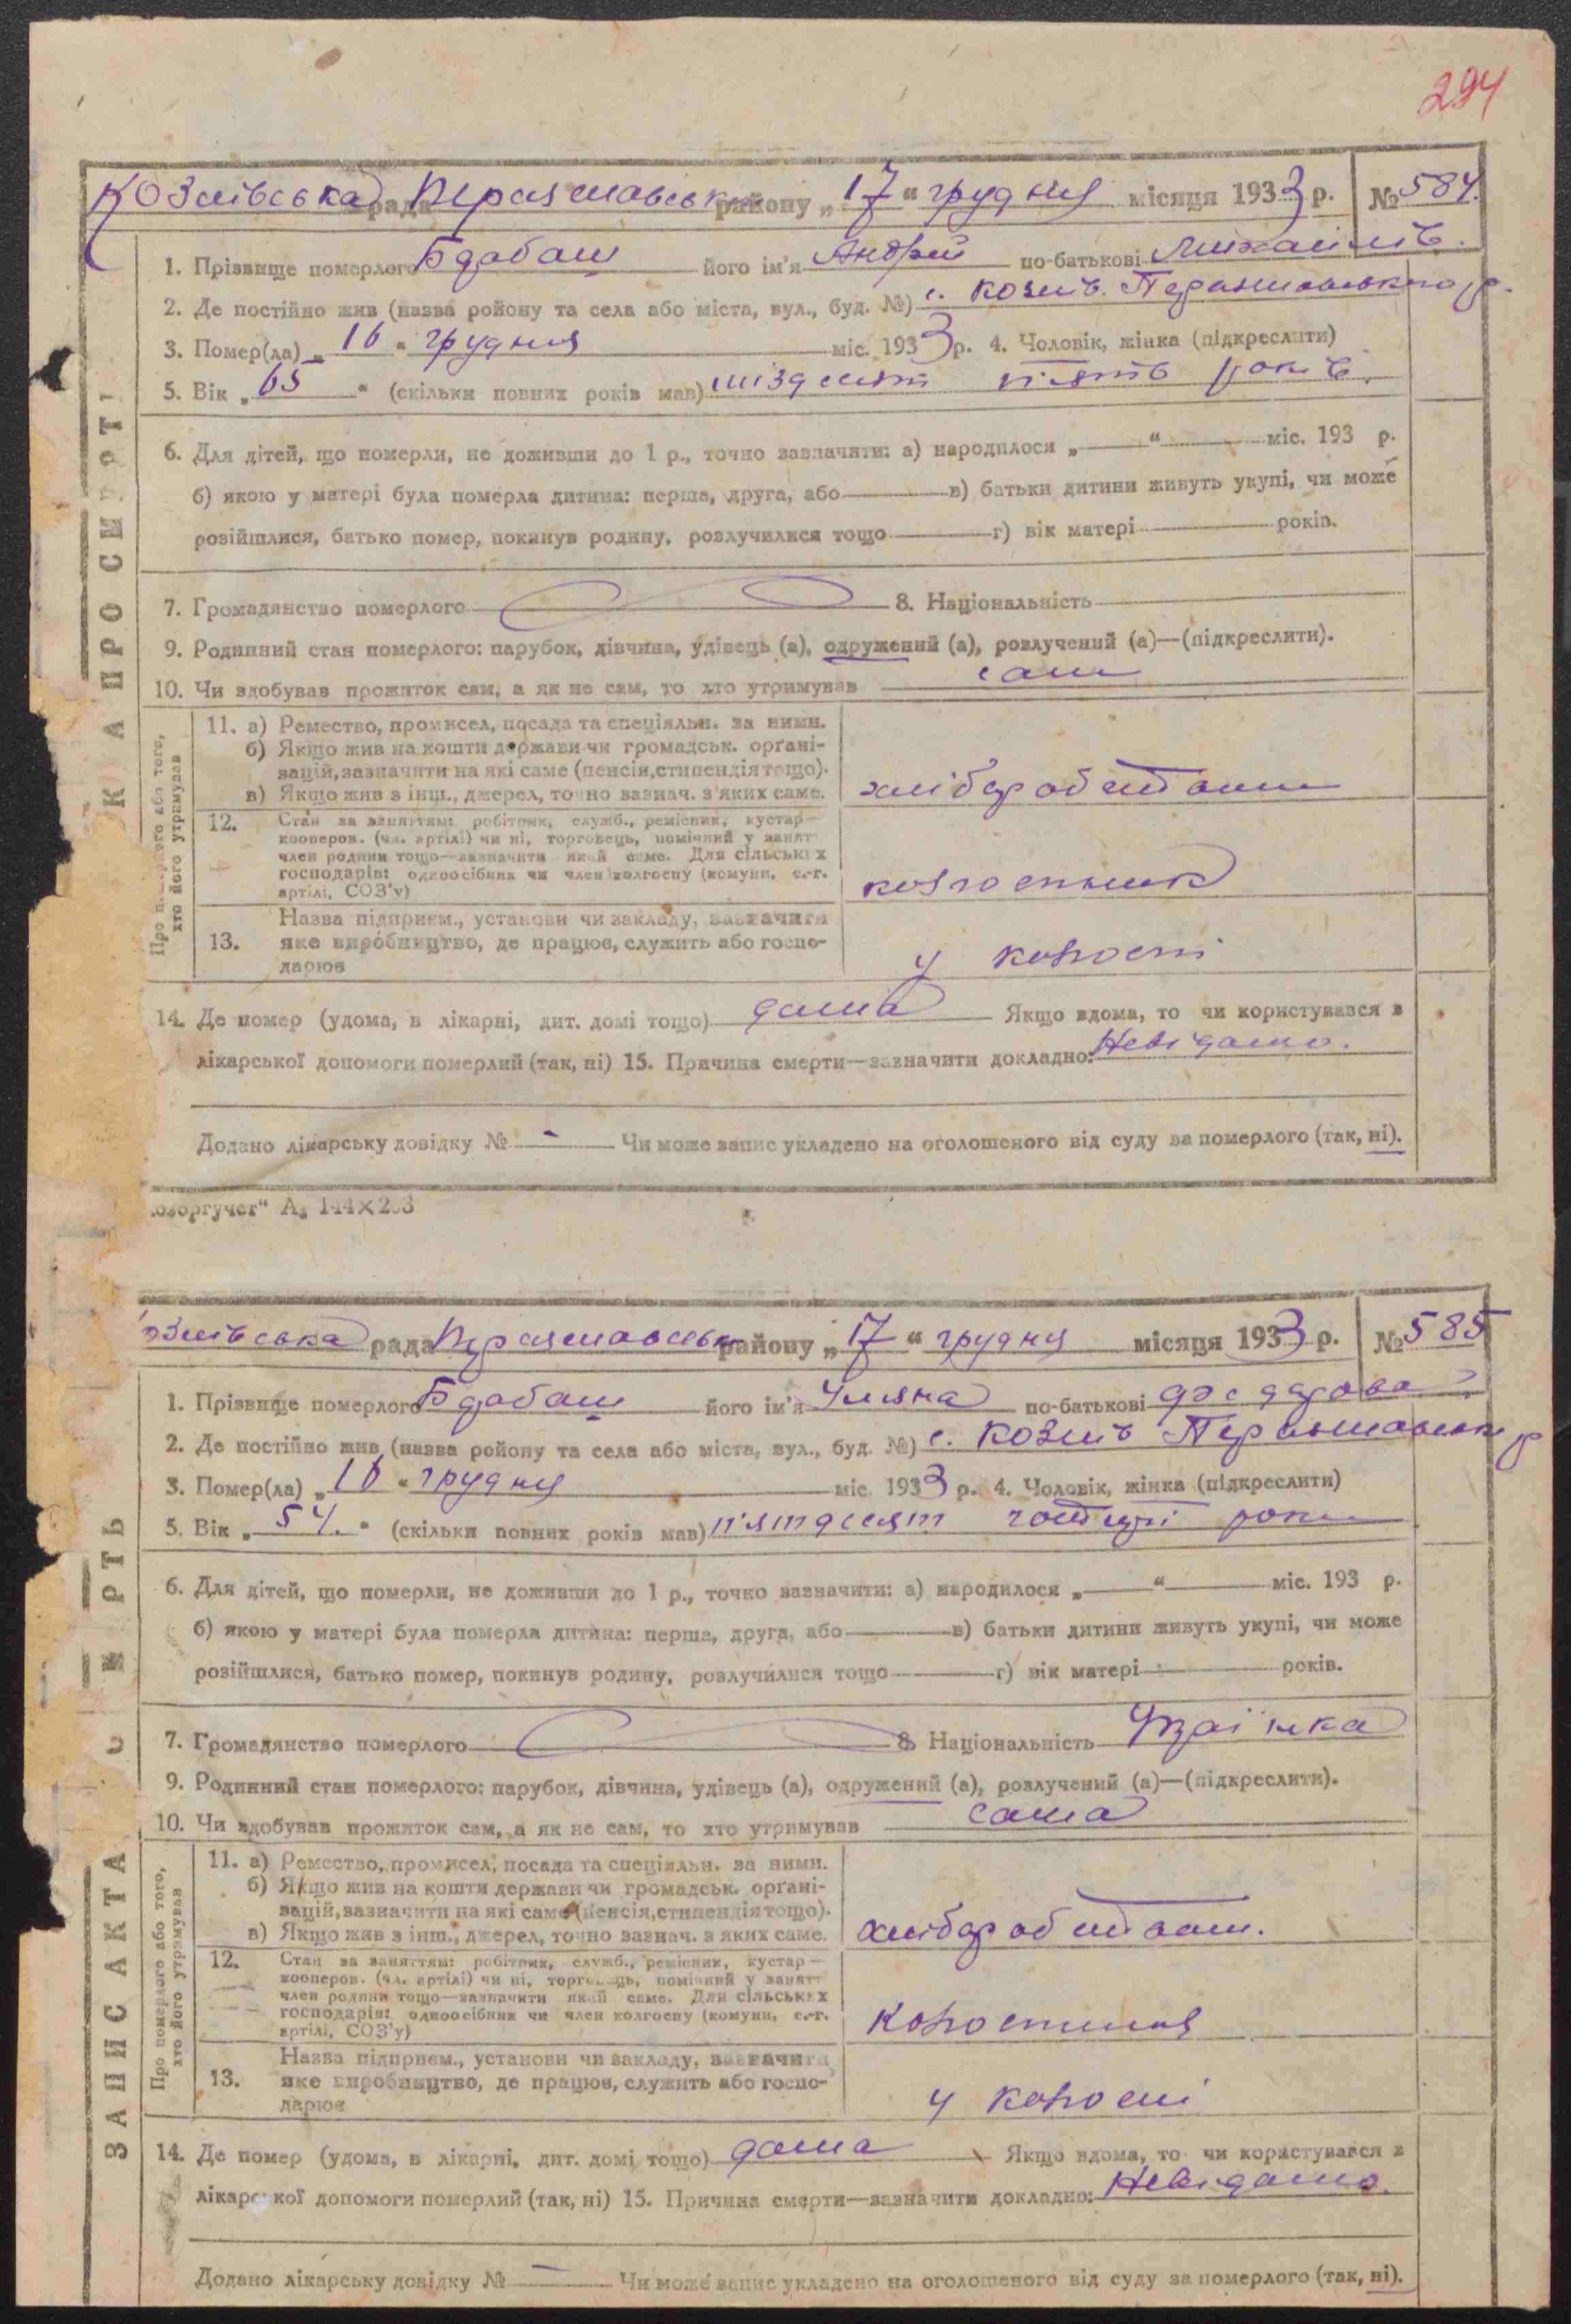 294
Козлівська рада Переяславськ району „17“ грудня місяця 1933 р. № 584.
1. Прізвище померлого Бдабаш його ім'я Андрей по-батькові Михайлів.
2. Де постійно жив (назва ройону та села або міста, вул., буд. №) с. Козлів. Переяславського р.
3. Помер(ла) „16“ грудня міс. 1933 р. 4. Чоловік, жінка (підкреслити)
5. Вік „65“ (скільки повних років мав) шіздесят пьять років.
6. Для дітей, що померли, не доживши до 1 р., точно зазначити: а) народилося „—“ міс. 193 р.
б) якою у матері була померла дитина: перша, друга, або — в) батьки дитини живуть укупі, чи може
розійшлися, батько помер, покинув родину, розлучилися тощо — г) вік матері років.
7. Громадянство померлого 8. Національність
9. Родинний стан померлого: парубок, дівчина, удівець (а), одружений (а), розлучений (а)—(підкреслити).
10. Чи здобував прожиток сам, а як не сам, то хто утримував сам
Про померлого або того,
хто його утримував
11. а) Ремество, промисел, посада та спеціяльн. за ними.
б) Якщо жив на кошти держави чи громадськ. орґані-
зацій, зазначити на які саме (пенсія, стипендія тощо).
в) Якщо жив з інш., джерел, точно зазнач. з яких саме.
хлібороб
12. Стан за заняттям: робітник, служб., ремісник, кустар—
кооперов. (чл. артілі) чи ні, торговець, помічний у занятт
член родини тощо—зазначити який саме. Для сільських
господарів: одноосібник чи член колгоспу (комуни, с.-г.
артілі, СОЗ'у)
колгоспник
13. Назва підприєм., установи чи закладу, зазначити
яке виробництво, де працює, служить або госпо-
дарює
у колгоспі
14. Де помер (удома, в лікарні, дит. домі тощо) дома Якщо вдома, то чи користувався з
лікарської допомоги померлий (так, ні) 15. Причина смерти—зазначити докладно: Невідомо.
Додано лікарську довідку № - Чи може запис укладено на оголошеного від суду за померлого (так, ні).
ЗАПИС АКТА ПРО СМЕРТЬ
оюзоргучет“ А₅ 144×203
озлівська рада Переяславськ району „17“ грудня місяця 1933 р. № 585
1. Прізвище померлого Бдабаш його ім'я Уляна по-батькові
2. Де постійно жив (назва ройону та села або міста, вул., буд. №) с. Козлів Переяславськ р
3. Помер(ла) „16“ грудня міс. 1933 р. 4. Чоловік, жінка (підкреслити)
5. Вік „54.“ (скільки повних років мав) п'ятдесят чотирі роки
6. Для дітей, що померли, не доживши до 1 р., точно зазначити: а) народилося „—“ міс. 193 р.
б) якою у матері була померла дитина: перша, друга, або — в) батьки дитини живуть укупі, чи може
розійшлися, батько помер, покинув родину, розлучилися тощо — г) вік матері років.
7. Громадянство померлого 8. Національність Украінка
9. Родинний стан померлого: парубок, дівчина, удівець (а), одружений (а), розлучений (а)—(підкреслити).
10. Чи здобував прожиток сам, а як не сам, то хто утримував сама
Про померлого або того,
хто його утримував
11. а) Ремество, промисел, посада та спеціяльн. за ними.
б) Якщо жив на кошти держави чи громадськ. орґані-
зацій, зазначити на які саме (пенсія, стипендія тощо).
в) Якщо жив з інш., джерел, точно зазнач. з яких саме.
хлібороб
12. Стан за заняттям: робітник, служб., ремісник, кустар—
кооперов. (чл. артілі) чи ні, торговець, помічний у занятт
член родини тощо—зазначити який саме. Для сільських
господарів: одноосібник чи член колгоспу (комуни, с.-г.
артілі, СОЗ'у)
13. Назва підприєм., установи чи закладу, зазначити
яке виробництво, де працює, служить або госпо-
дарює
у колгоспі
14. Де помер (удома, в лікарні, дит. домі тощо) дома Якщо вдома, то чи користувався з
лікарської допомоги померлий (так, ні) 15. Причина смерти—зазначити докладно: Невідомо.
Додано лікарську довідку № — Чи може запис укладено на оголошеного від суду за померлого (так, ні).
ЗАПИС АКТА СМЕРТЬ